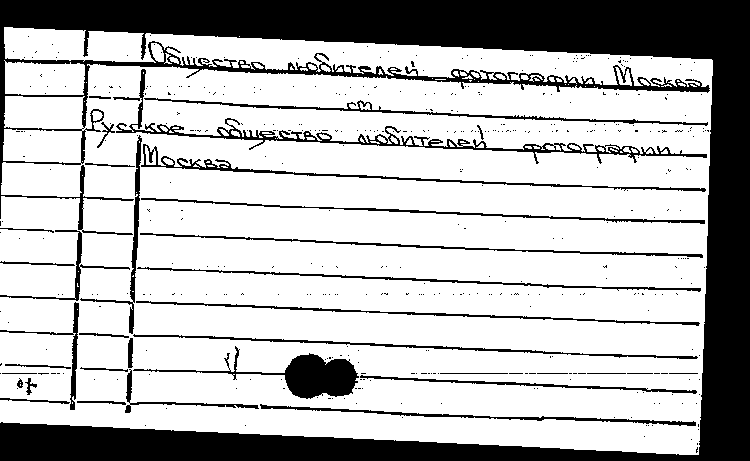 Общество любителей фотографии. Москва
см.
Русское общество любителей фотографии.
Москва.